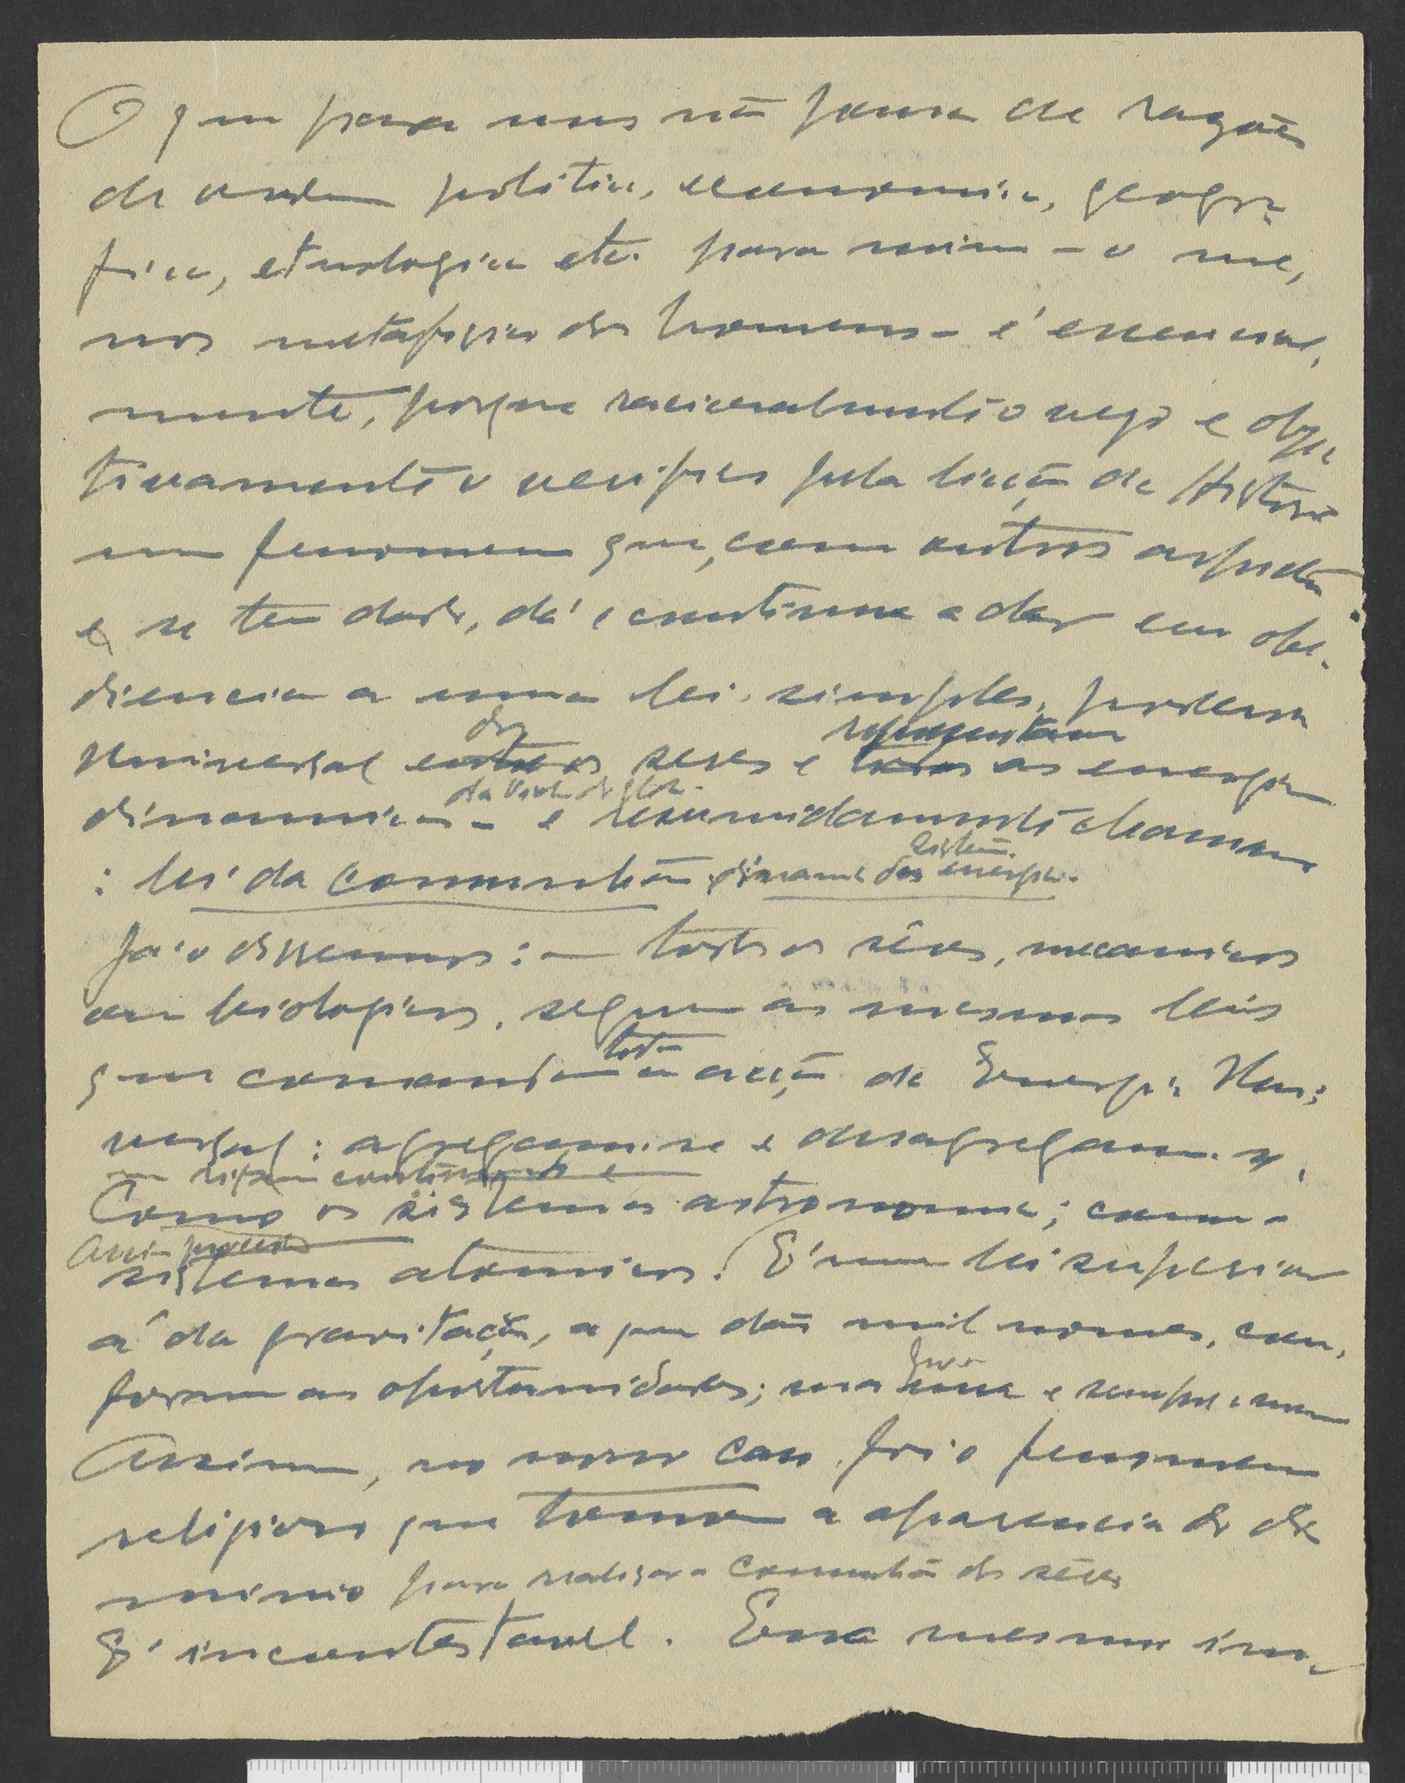 O que para uns não passa de razões
de ordem politica, economica, geogra
fica, etnologica etc. para mim - o me,
nos metafisico dos homens - é essencial,
mente, porque racionalmente o vejo e obje
tivamente o verifico pela lição da Historia
um fenomeno que, com outros aspectos
e se tem dado, dá e continua a dar em obe
diencia a uma lei simples,
Universal dos seres e representam as energias
dinamicas - e resumidamente chamamos
: lei da comunhão dinamica das energias.
Já o dissemos: - todos os sêres, mecanicos
ou biologicos, seguem as mesmas leis
que comandam toda a acção da Energia Uni
versal: agregam-se e desagregam-se,
Como os sistemas astronomicos; como
Assim
sistemas atomicos. É uma lei superior
á da gravitação, a que dão mil nomes, con,
forme as oportunidades; mas é sempre uma
Assim, no nosso caso, foi o fenomeno
religioso que tomou a aparencia de do
minio para realizar a comunhão dos sêres
É incontestavel. Essa mesma